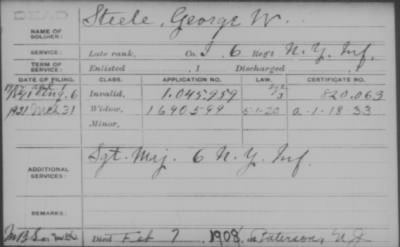 DEAD
NAME OF SOLDIER: Steele, George W.
SERVICE: Late rank, Co. I, 6 Reg't N.Y. Inf.
TERM OF SERVICE: Enlisted , 1 Discharged , 1
DATE OF FILING. CLASS. APPLICATION NO. LAW. CERTIFICATE NO.
1891 Aug. 6 Invalid, 1.045.959 820.063
1921 Mch 31 Widow, 1690599 5-1-20 a-1-18 33
Minor,
ADDITIONAL SERVICES: Sgt. Maj. 6 N.Y. Inf.
REMARKS:
Died Feb 7, 1908, in Paterson, N.J.